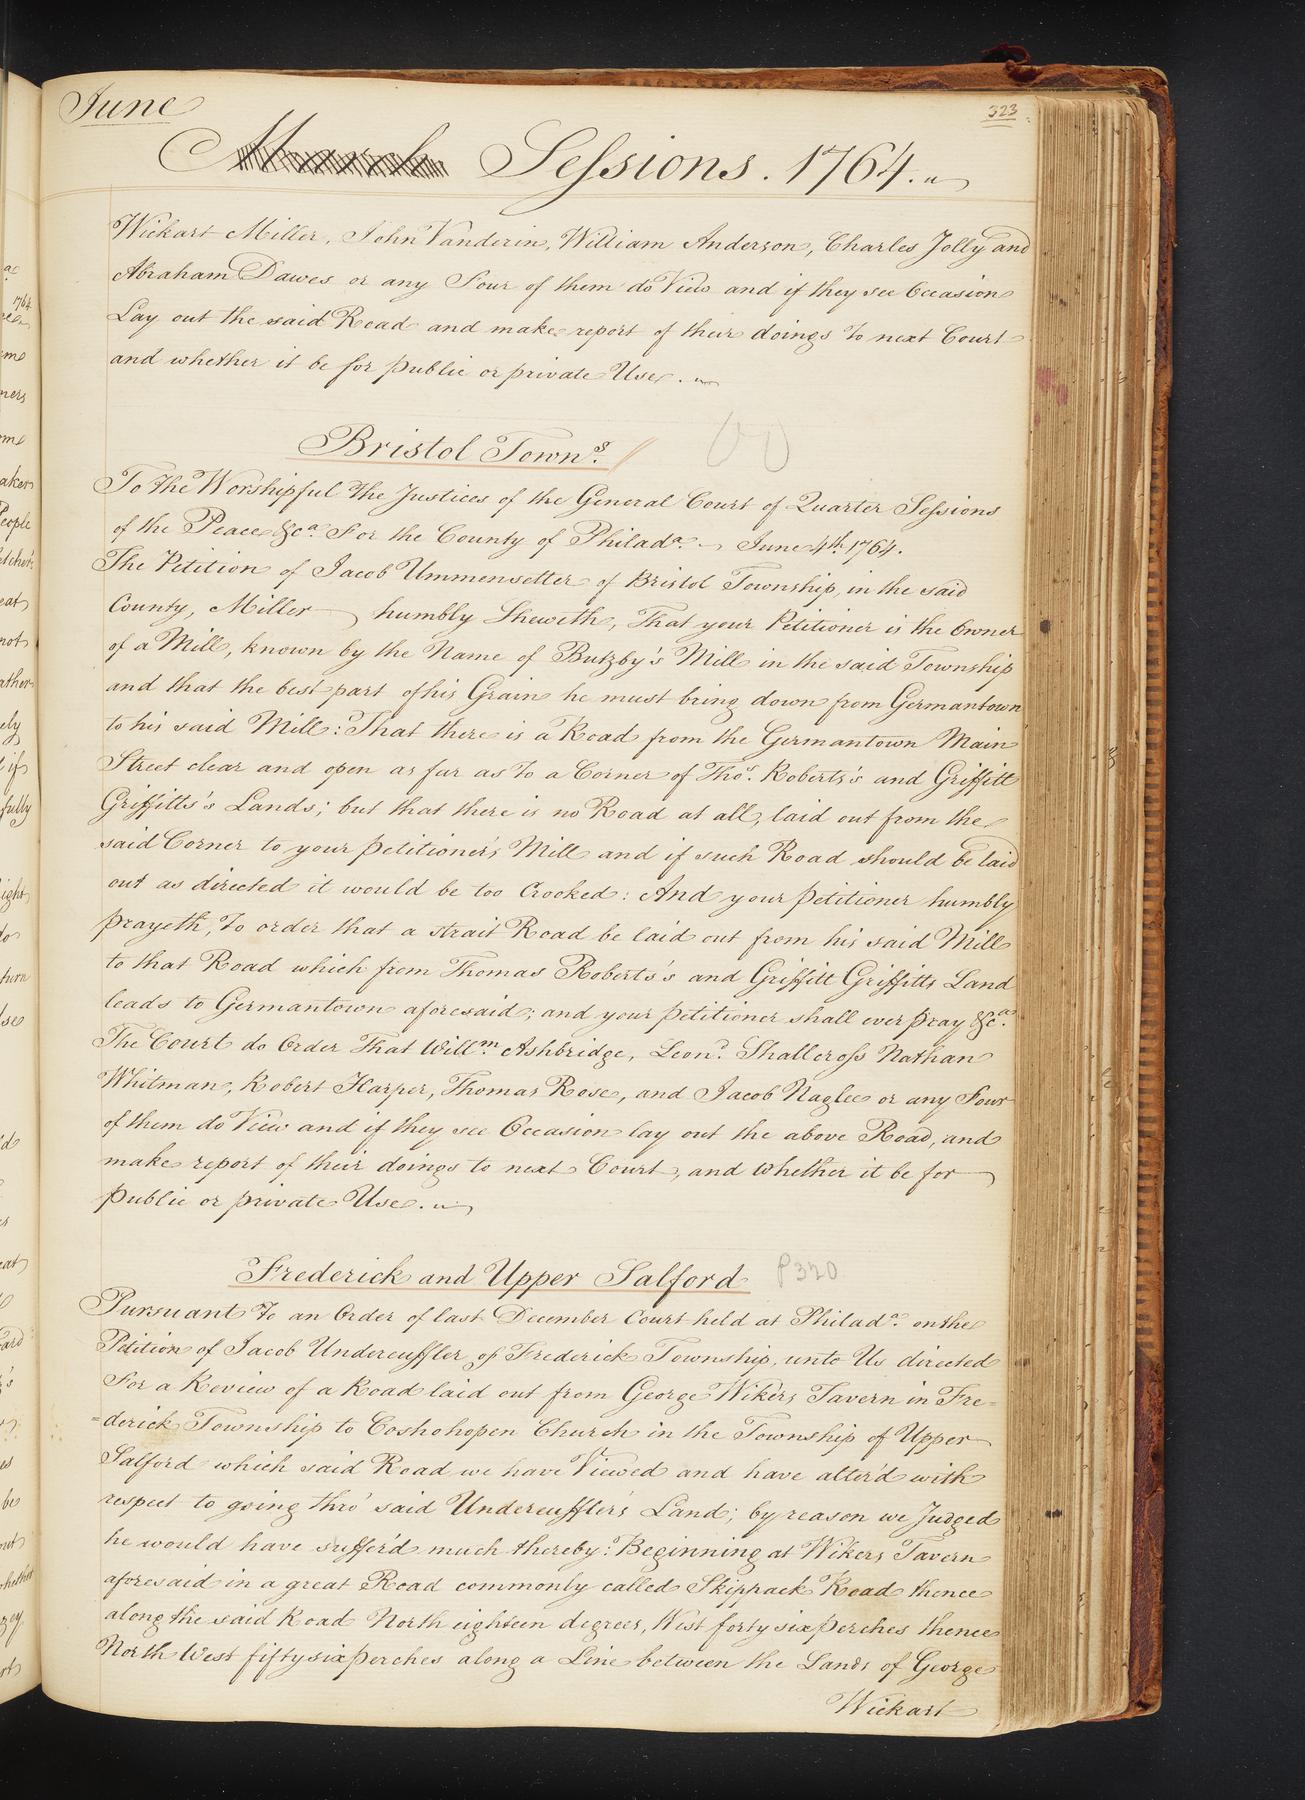 June
323
March Sessions. 1764.
Wickart Miller, John Vanderin, William Anderson, Charles Jolly and
Abraham Dawes or any Four of them do View and if they see Occasion
Lay out the said Road and make report of their doings to next Court
and whether it be for public or private Use.
Bristol Towns.
To the Worshipful the Justices of the General Court of Quarter Sessions
of the Peace &ca. For the County of Philada. June 4th. 1764.
The Petition of Jacob Ummensetter of Bristol Township, in the said
County, Miller humbly Sheweth, That your Petitioner is the Owner
of a Mill, known by the Name of Butzby's Mill in the said Township
and that the best part of his Grain he must bring down from Germantown
to his said Mill: That there is a Road from the Germantown Main
Street clear and open as far as to a Corner of Thos. Roberts's and Griffitt
Griffitts's Lands; but that there is no Road at all, laid out from the
said Corner to your petitioner's Mill and if such Road should be laid
out as directed it would be too Crooked: And your petitioner humbly
prayeth, To order that a strait Road be laid out from his said Mill
to that Road which from Thomas Roberts's and Griffitt Griffitts Land
leads to Germantown aforesaid; and your petitioner shall ever pray &ca.
The Court do Order That Willm. Ashbridge, Leond. Shallcross Nathan
Whitman, Robert Harper, Thomas Rose, and Jacob Naglee or any Four
of them do View and if they see Occasion lay out the above Road, and
make report of their doings to next Court, and whether it be for
public or private Use.
Frederick and Upper Salford P320
Pursuant To an Order of last December Court held at Philada. on the
Petition of Jacob Undercuffler of Frederick Township, unto Us directed
For a Review of a Road laid out from George Wikers Tavern in Fre=
=derick Township to Coshohopen Church in the Township of Upper
Salford which said Road we have Viewed and have alter'd with
respect to going thro' said Undercuffler's Land; by reason we Judged
he would have suffer'd much thereby: Beginning at Wikers Tavern
aforesaid in a great Road commonly called Skippack Road thence
along the said Road North eighteen degrees, West forty six perches thence
North West fifty six perches along a Line between the Lands of George
Wickart